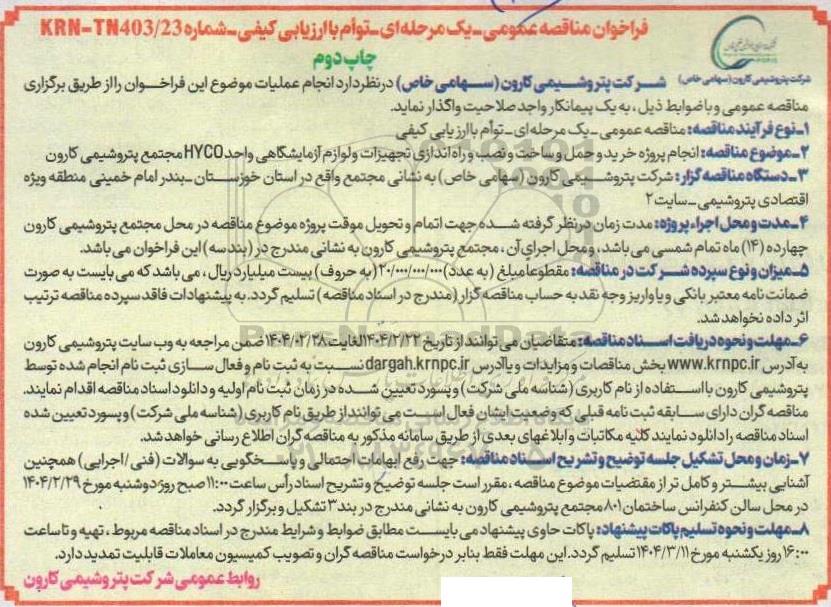 فراخوان مناقصه عمومی ـ یک مرحله ای ـ توأم با ارزیابی کیفی ـ شماره KRN-TN403/23
چاپ دوم
شرکت پتروشیمی کارون (سهامی خاص)
شرکت پتروشیمی کارون (سهامی خاص) در نظر دارد انجام عملیات موضوع این فراخوان را از طریق برگزاری
مناقصه عمومی و با ضوابط ذیل، به یک پیمانکار واجد صلاحیت واگذار نماید.
۱ـ نوع فرآیند مناقصه: مناقصه عمومی ـ یک مرحله ای ـ توأم با ارزیابی کیفی
۲ـ موضوع مناقصه: انجام پروژه خرید و حمل و ساخت و نصب و راه اندازی تجهیزات و لوازم آزمایشگاهی واحد HYCO مجتمع پتروشیمی کارون
۳ـ دستگاه مناقصه گزار: شرکت پتروشیمی کارون (سهامی خاص) به نشانی مجتمع واقع در استان خوزستان ـ بندر امام خمینی منطقه ویژه
اقتصادی پتروشیمی ـ سایت ۲
۴ـ مدت و محل اجراء پروژه: مدت زمان در نظر گرفته شده جهت اتمام و تحویل موقت پروژه موضوع مناقصه در محل مجتمع پتروشیمی کارون
چهارده (۱۴) ماه تمام شمسی می باشد، و محل اجرای آن، مجتمع پتروشیمی کارون به نشانی مندرج در (بند سه) این فراخوان می باشد.
۵ـ میزان و نوع سپرده شرکت در مناقصه: مقطوعا مبلغ (به عدد) ۲۰/۰۰۰/۰۰۰/۰۰۰ (به حروف) بیست میلیارد ریال، می باشد که می بایست به صورت
ضمانت نامه معتبر بانکی و یا واریز وجه نقد به حساب مناقصه گزار (مندرج در اسناد مناقصه) تسلیم گردد. به پیشنهادات فاقد سپرده مناقصه ترتیب
اثر داده نخواهد شد.
۶ـ مهلت و نحوه دریافت اسناد مناقصه: متقاضیان می توانند از تاریخ ۱۴۰۴/۲/۲۲ لغایت ۱۴۰۴/۰۲/۲۸ ضمن مراجعه به وب سایت پتروشیمی کارون
به آدرس www.krnpc.ir بخش مناقصات و مزایدات و یا آدرس dargah.krnpc.ir نسبت به ثبت نام و فعال سازی ثبت نام انجام شده توسط
پتروشیمی کارون با استفاده از نام کاربری (شناسه ملی شرکت) و پسورد تعیین شده در زمان ثبت نام اولیه و دانلود اسناد مناقصه اقدام نمایند.
مناقصه گران دارای سابقه ثبت نامه قبلی که وضعیت ایشان فعال است می توانند از طریق نام کاربری (شناسه ملی شرکت) و پسورد تعیین شده
اسناد مناقصه را دانلود نمایند کلیه مکاتبات و ابلاغهای بعدی از طریق سامانه مذکور به مناقصه گران اطلاع رسانی خواهد شد.
۷ـ زمان و محل تشکیل جلسه توضیح و تشریح اسناد مناقصه: جهت رفع ابهامات احتمالی و پاسخگویی به سوالات (فنی/اجرایی) همچنین
آشنایی بیشتر و کامل تر از مقتضیات موضوع مناقصه، مقرر است جلسه توضیح و تشریح اسناد رأس ساعت ۱۱:۰۰ صبح روز دوشنبه مورخ ۱۴۰۴/۲/۲۹
در محل سالن کنفرانس ساختمان ۸۰۱ مجتمع پتروشیمی کارون به نشانی مندرج در بند ۳ تشکیل و برگزار گردد.
۸ـ مهلت و نحوه تسلیم پاکات پیشنهاد: پاکات حاوی پیشنهاد می بایست مطابق ضوابط و شرایط مندرج در اسناد مناقصه مربوط، تهیه و تا ساعت
۱۶:۰۰ روز یکشنبه مورخ ۱۴۰۴/۳/۱۱ تسلیم گردد. این مهلت فقط بنابر درخواست مناقصه گران و تصویب کمیسیون معاملات قابلیت تمدید دارد.
روابط عمومی شرکت پتروشیمی کارون